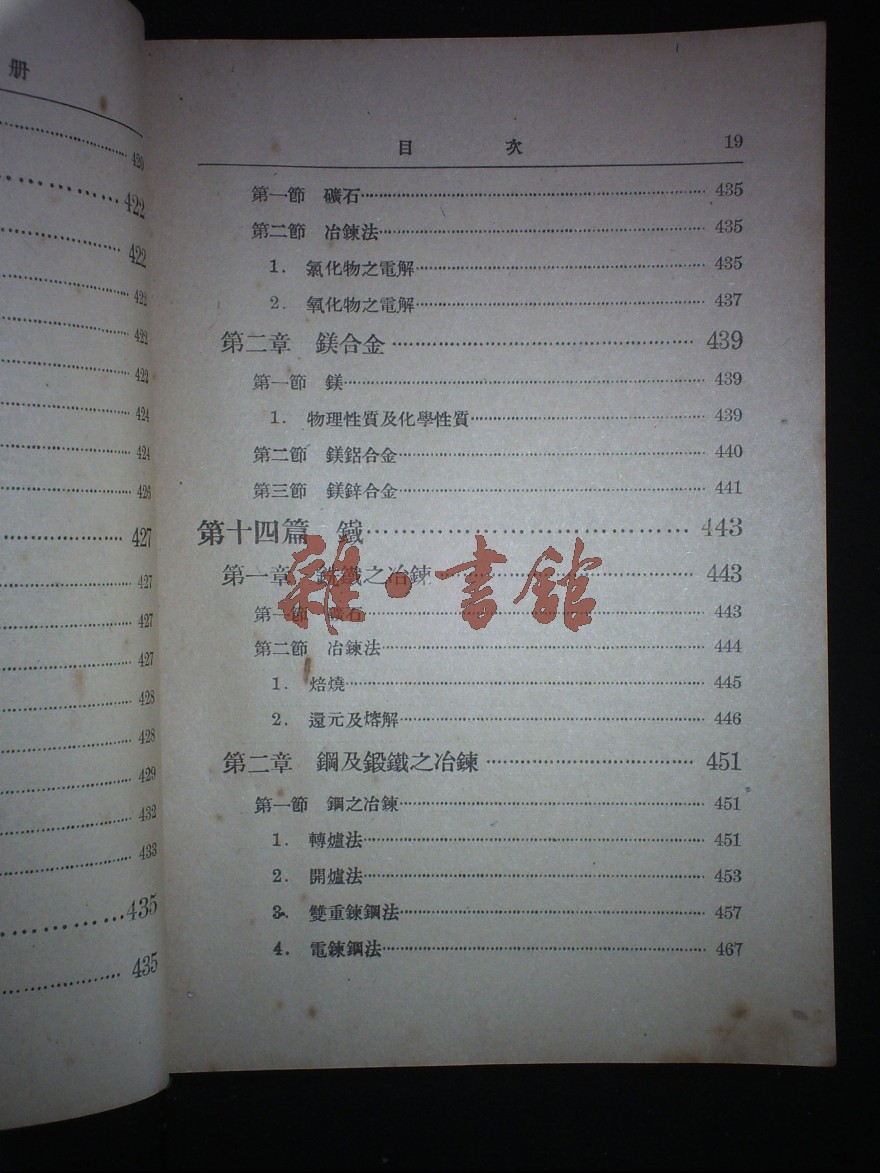 册
420
422
422
422
422
422
424
424
426
427
427
427
427
428
428
429
432
433
435
435
目 次 19
第一節 礦石 435
第二節 冶鍊法 435
1. 氯化物之電解 435
2. 氧化物之電解 437
第二章 鎂合金 439
第一節 鎂 439
1. 物理性質及化學性質 439
第二節 鎂鋁合金 440
第三節 鎂鋅合金 441
第十四篇 鐵 443
第一章 銑鐵之冶鍊 443
第一節 礦石 443
第二節 冶鍊法 444
1. 焙燒 445
2. 還元及熔解 446
第二章 鋼及鍛鐵之冶鍊 451
第一節 鋼之冶鍊 451
1. 轉爐法 451
2. 開爐法 453
3. 雙重鍊鋼法 457
4. 電鍊鋼法 467
雜·書館